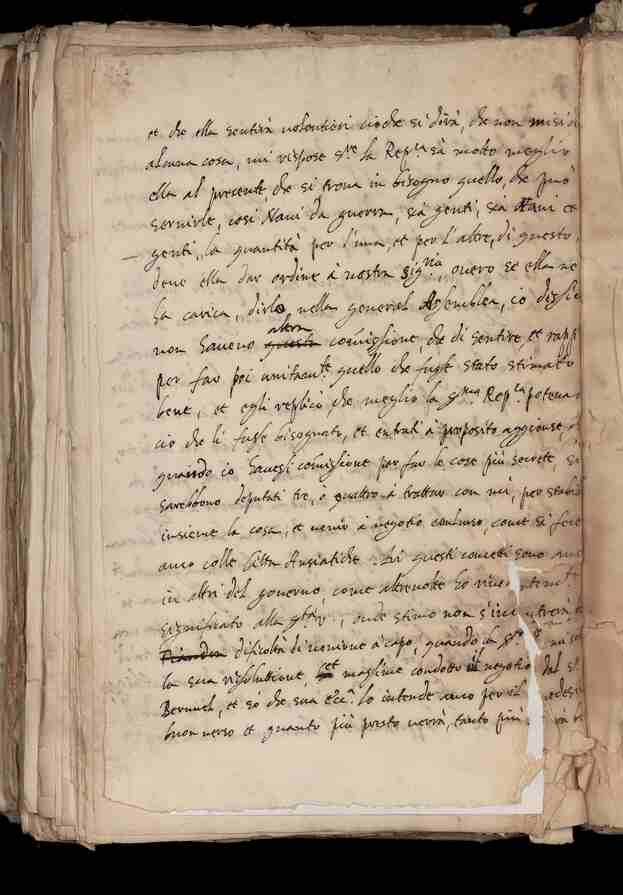 et che ella sentirà volontieri ciò che si dirà, che non mi sia
alcuna cosa, mi rispose S.re la Rep.ca sà molto meglio
ella al presente, che si trova in bisogno quello, che può
servirle, così Navi da guerra, sia genti, sia Navi et
genti, la quantità per l'una, et per l'altre, di questo
deve ella dar ordine à nostra Sig.ria, overo se ella ne
ha carica, dirlo nella general Assemblea, io dissi
non havevo questa altra comissione, che di sentire, et rapp
per far poi unitam.te quello che fusse stato stimato
bene, et egli replicò che meglio la Rep.ca poteva
ciò che li fusse bisognato, et entrati à proposito aggionse,
quando io havessi comissione per far le cose più secrete, si
sarebbono deputati tre, o quattro a trattar con mè, per
insieme la cosa, et venir à negotio concluso, come si fece
anco colle Città Ansiatiche. Di questi concetti sono anco
in altri del governo, come altrevolte hò
significato alla onde stimo non
dificoltà di venirne à capo, quando la
la sua rissoluttione, et massime condotto il negotio dal
et sò che sua ecc.a lo intende anco per il
buon verso et quanto più presto verrà, tanto più